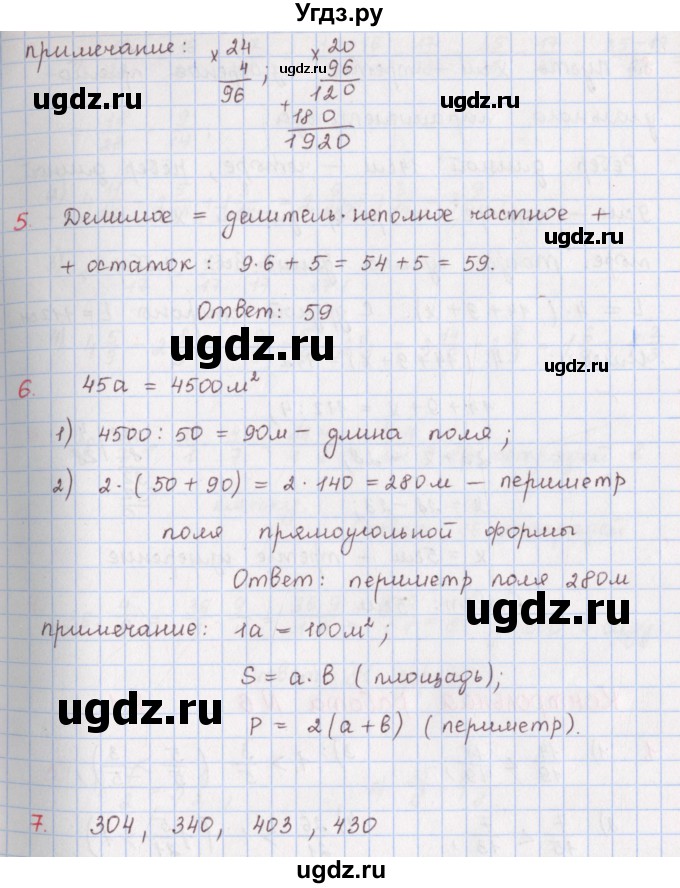 Угдз.ру
примечание: × 24 × 20
4 ; 96
96 120
+
180
1920
5. Делимое = делитель·неполное частное +
+ остаток: 9·6 + 5 = 54 + 5 = 59.
Ответ: 59
6. 45а = 4500м²
1) 4500 : 50 = 90м – длина поля;
2) 2·(50 + 90) = 2·140 = 280м – периметр
поля прямоугольной формы
Ответ: периметр поля 280м
примечание: 1а – 100м²;
S = a·в (площадь);
P = 2(a+в) (периметр).
7. 304, 340, 403, 430
ugdz.ru
ugdz.ru
ugdz.ru
ugdz.ru
ugdz.ru
ugdz.ru
ugdz.ru
ugdz.ru
ugdz.ru